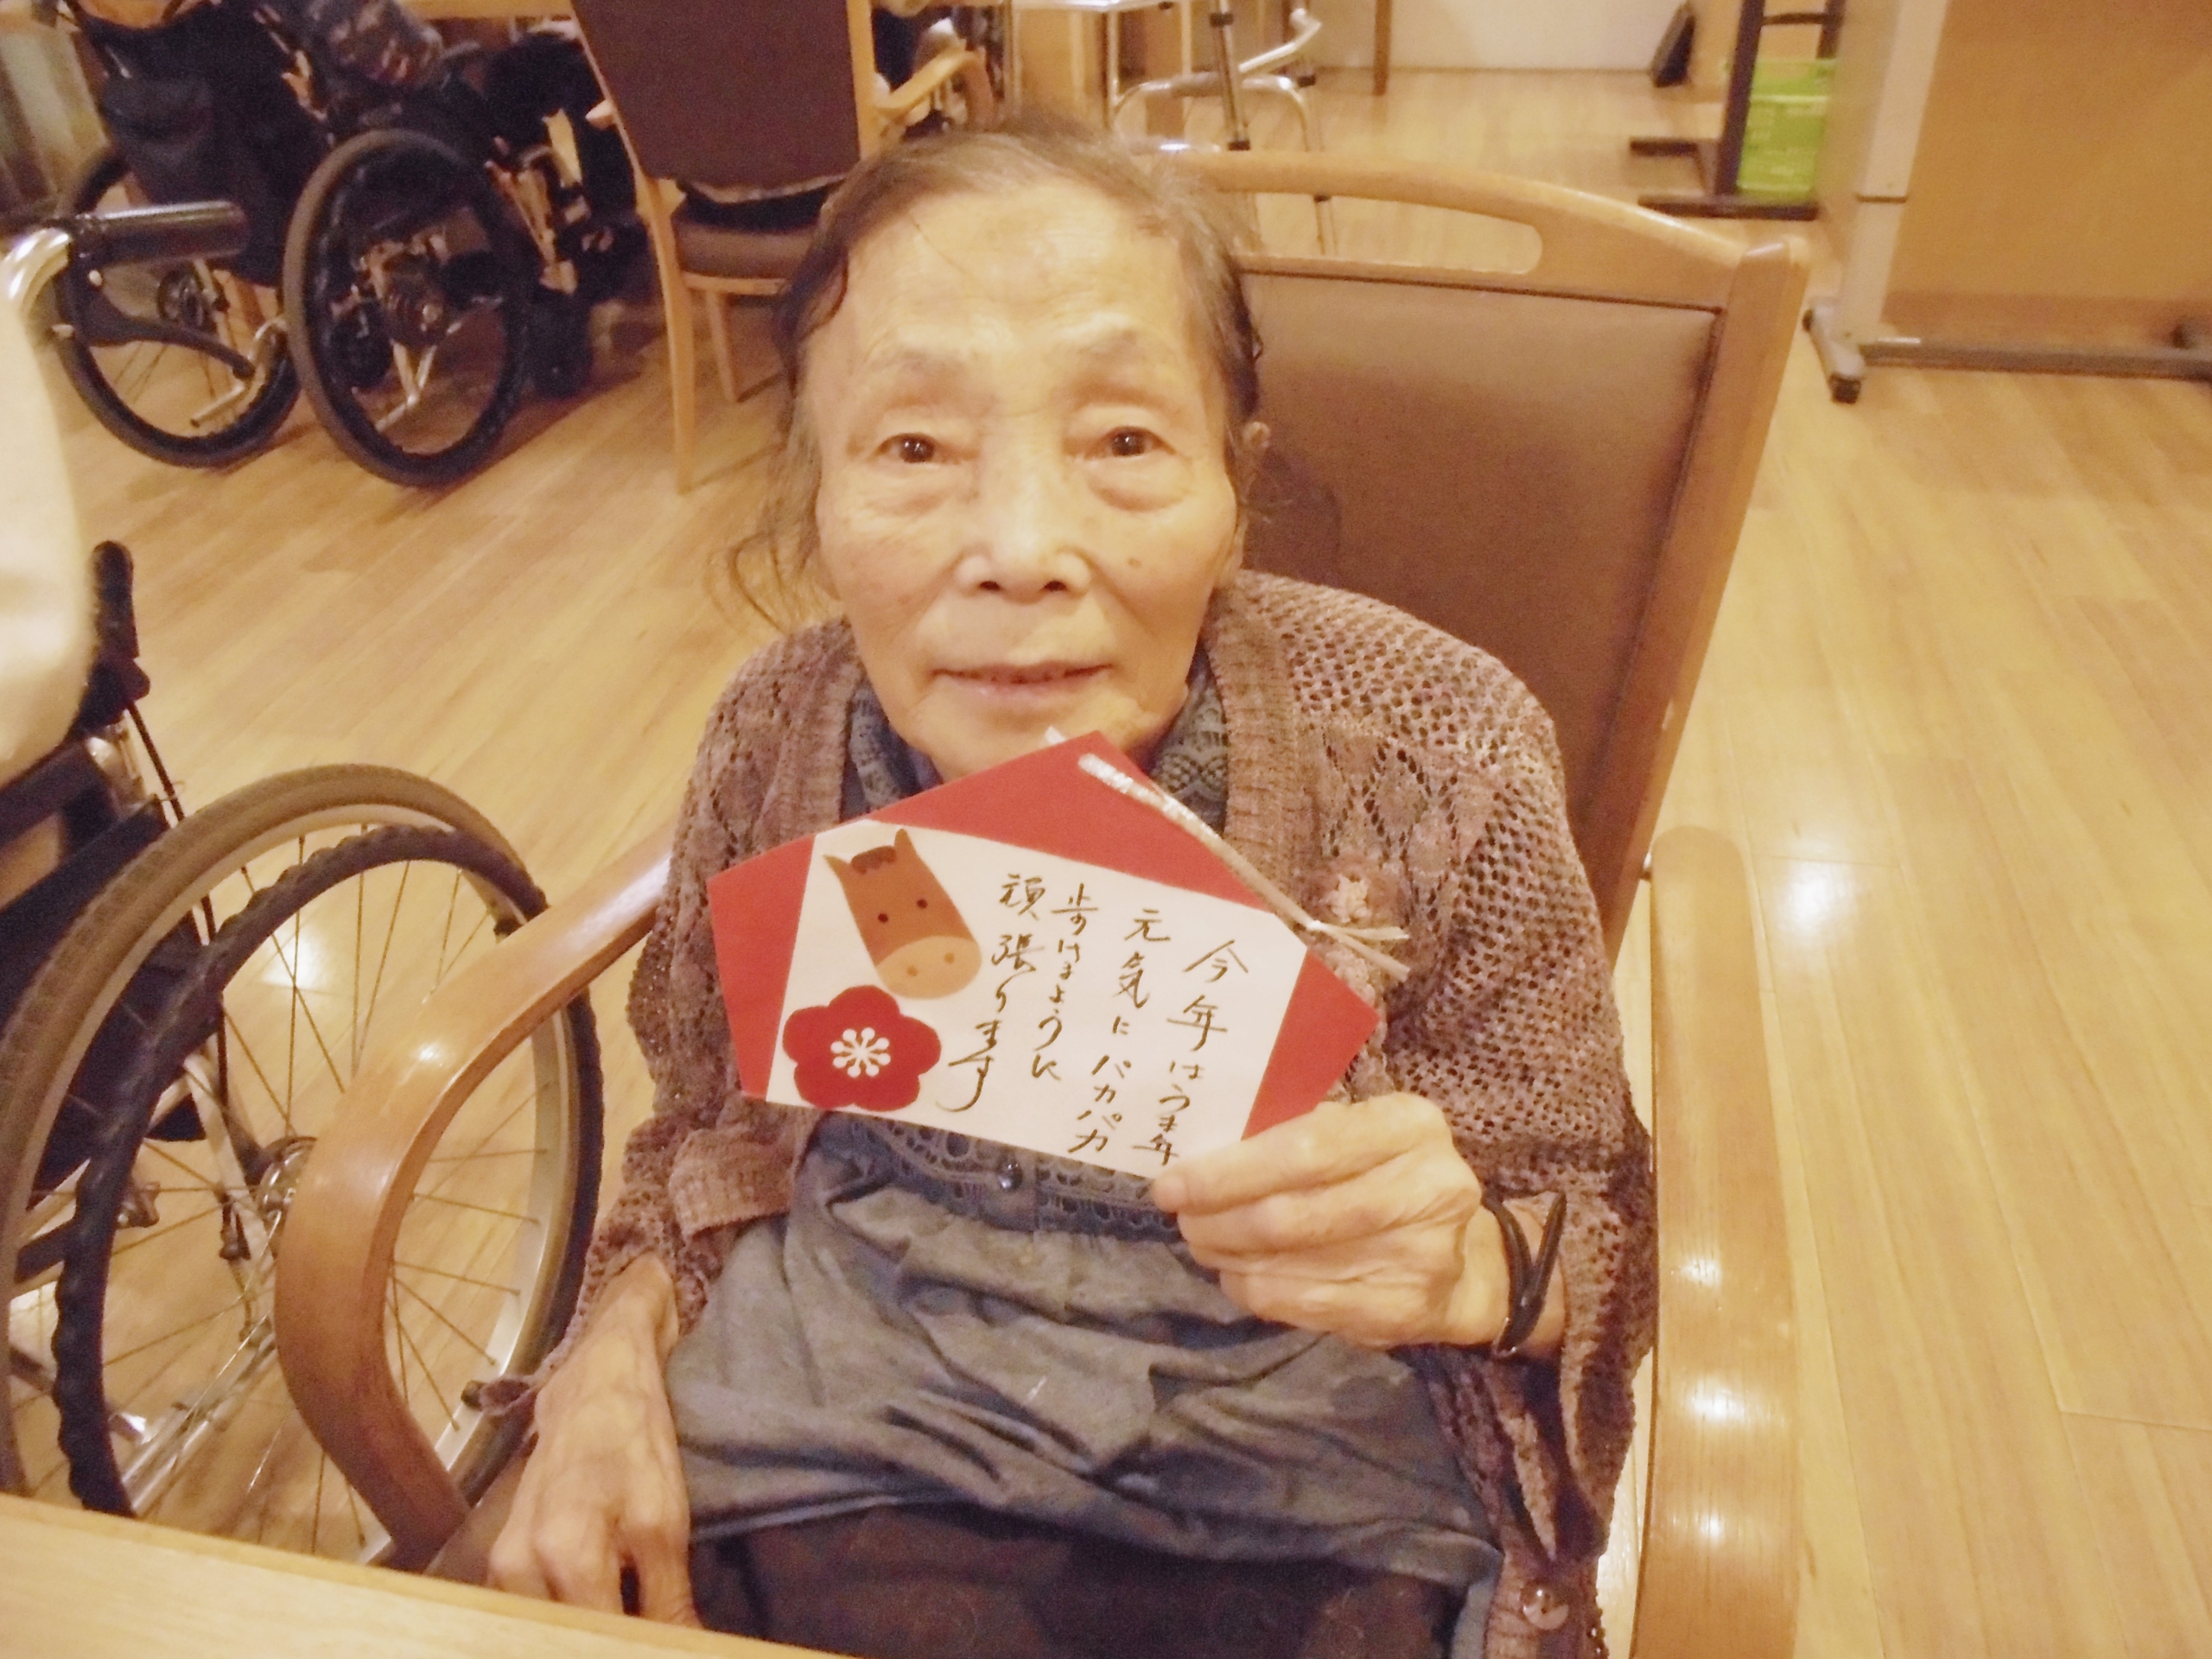 今年はうま年
元気にパカパカ
歩けるように
頑張ります